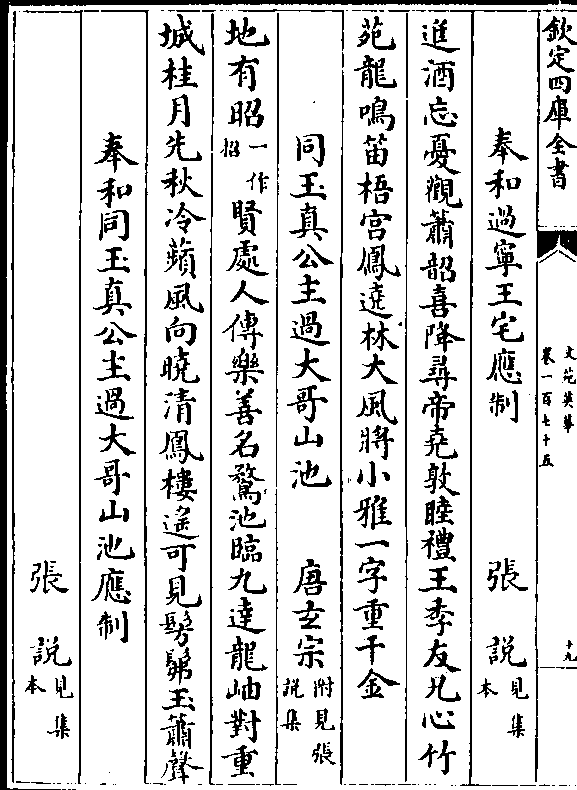 欽定四庫全書
文苑英華
卷一百七十五
十九
奉和過寧王宅應制 張說見集本
進酒忘憂觀蕭韶喜降尋帝堯敦睦禮王季友兄心竹
苑龍鳴笛梧宮鳳遶林大風將小雅一字重千金
同玉真公主過大哥山池 唐玄宗附見張說集
地有招一作招賢處人傳樂善名鶩池臨九達龍岫對重
城桂月先秋冷蘋風向曉清鳳樓遙可見髣髴玉蕭聲
奉和同玉真公主過大哥山池應制
張說見集本